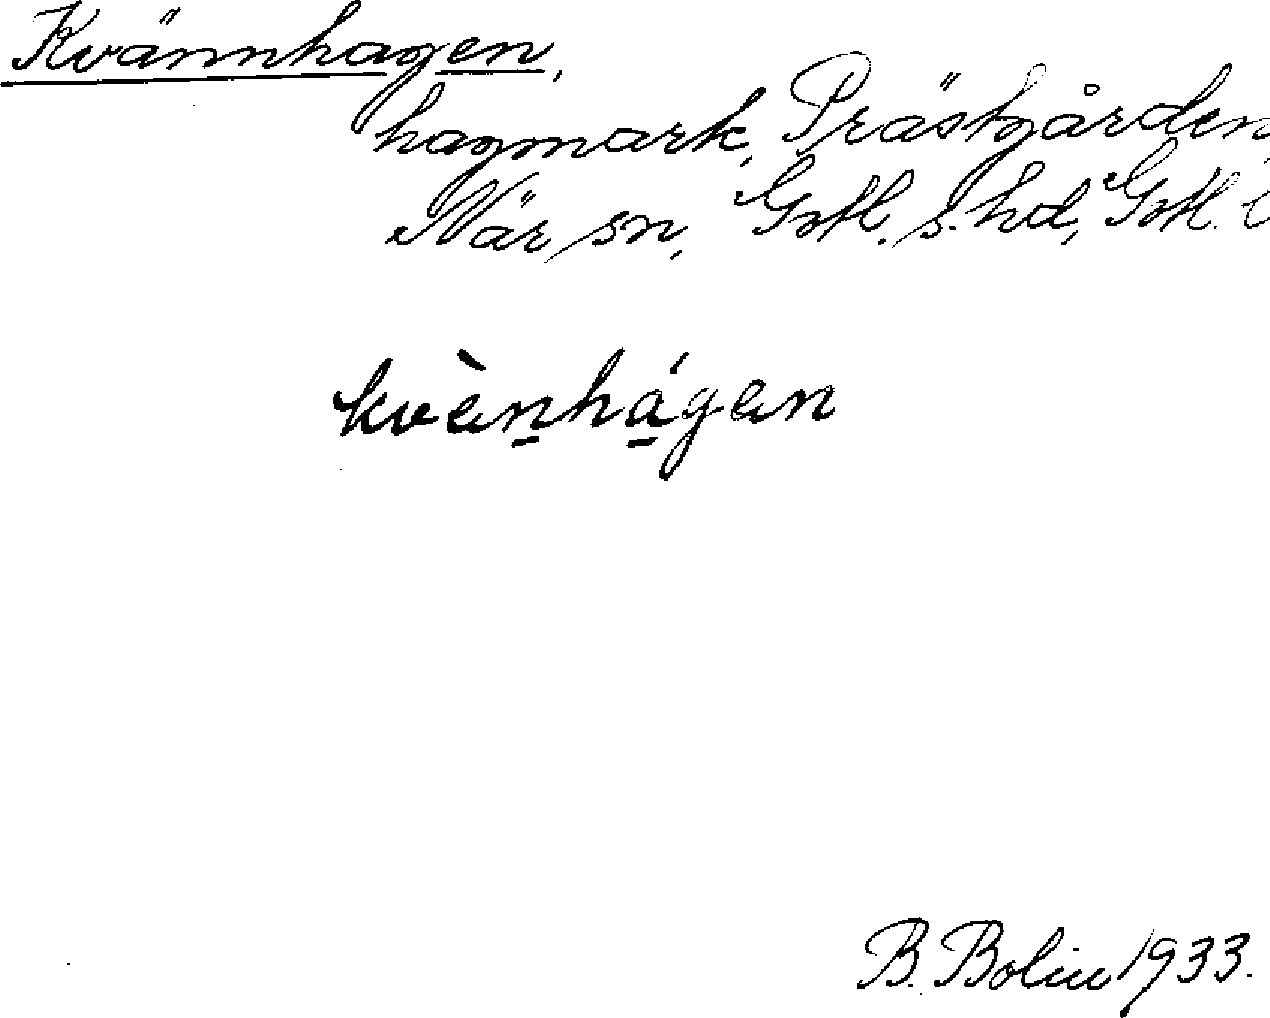 Kvännhagen,
hagmark, Prästgården,
När sn, Gotl. s. hd, Gotl. l
kvènhágen
B. Bolin 1933.